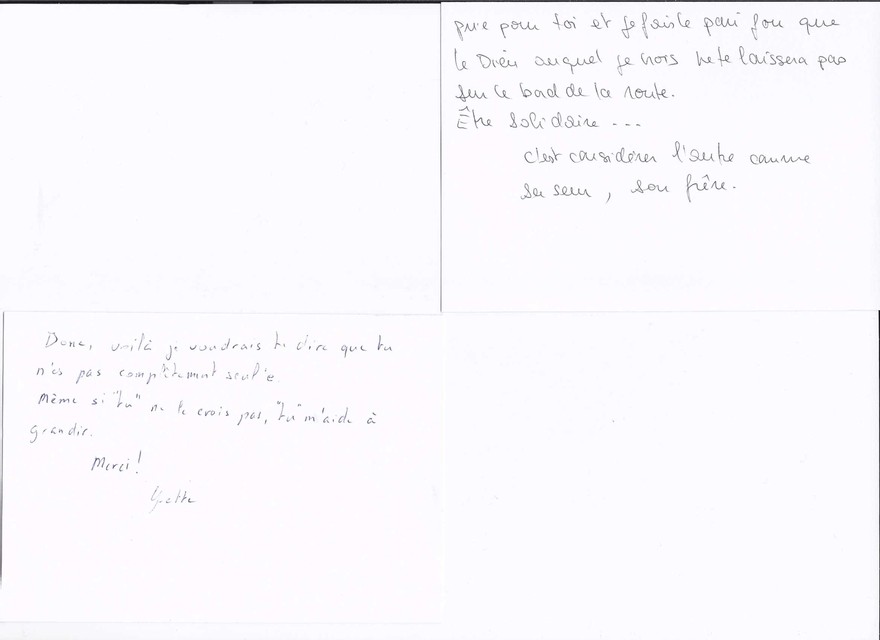 prie pour toi et je fais le pari fou que
le Dieu auquel je crois ne te laissera pas
sur le bord de la route.
Être solidaire ...
c'est considérer l'autre comme
sa sœur, son frère.
Donc, voilà je voudrais te dire que tu
n'es pas complètement seul·e
Même si "tu" ne le crois pas, "tu" m'aide à
grandir.
Merci !
Yvette